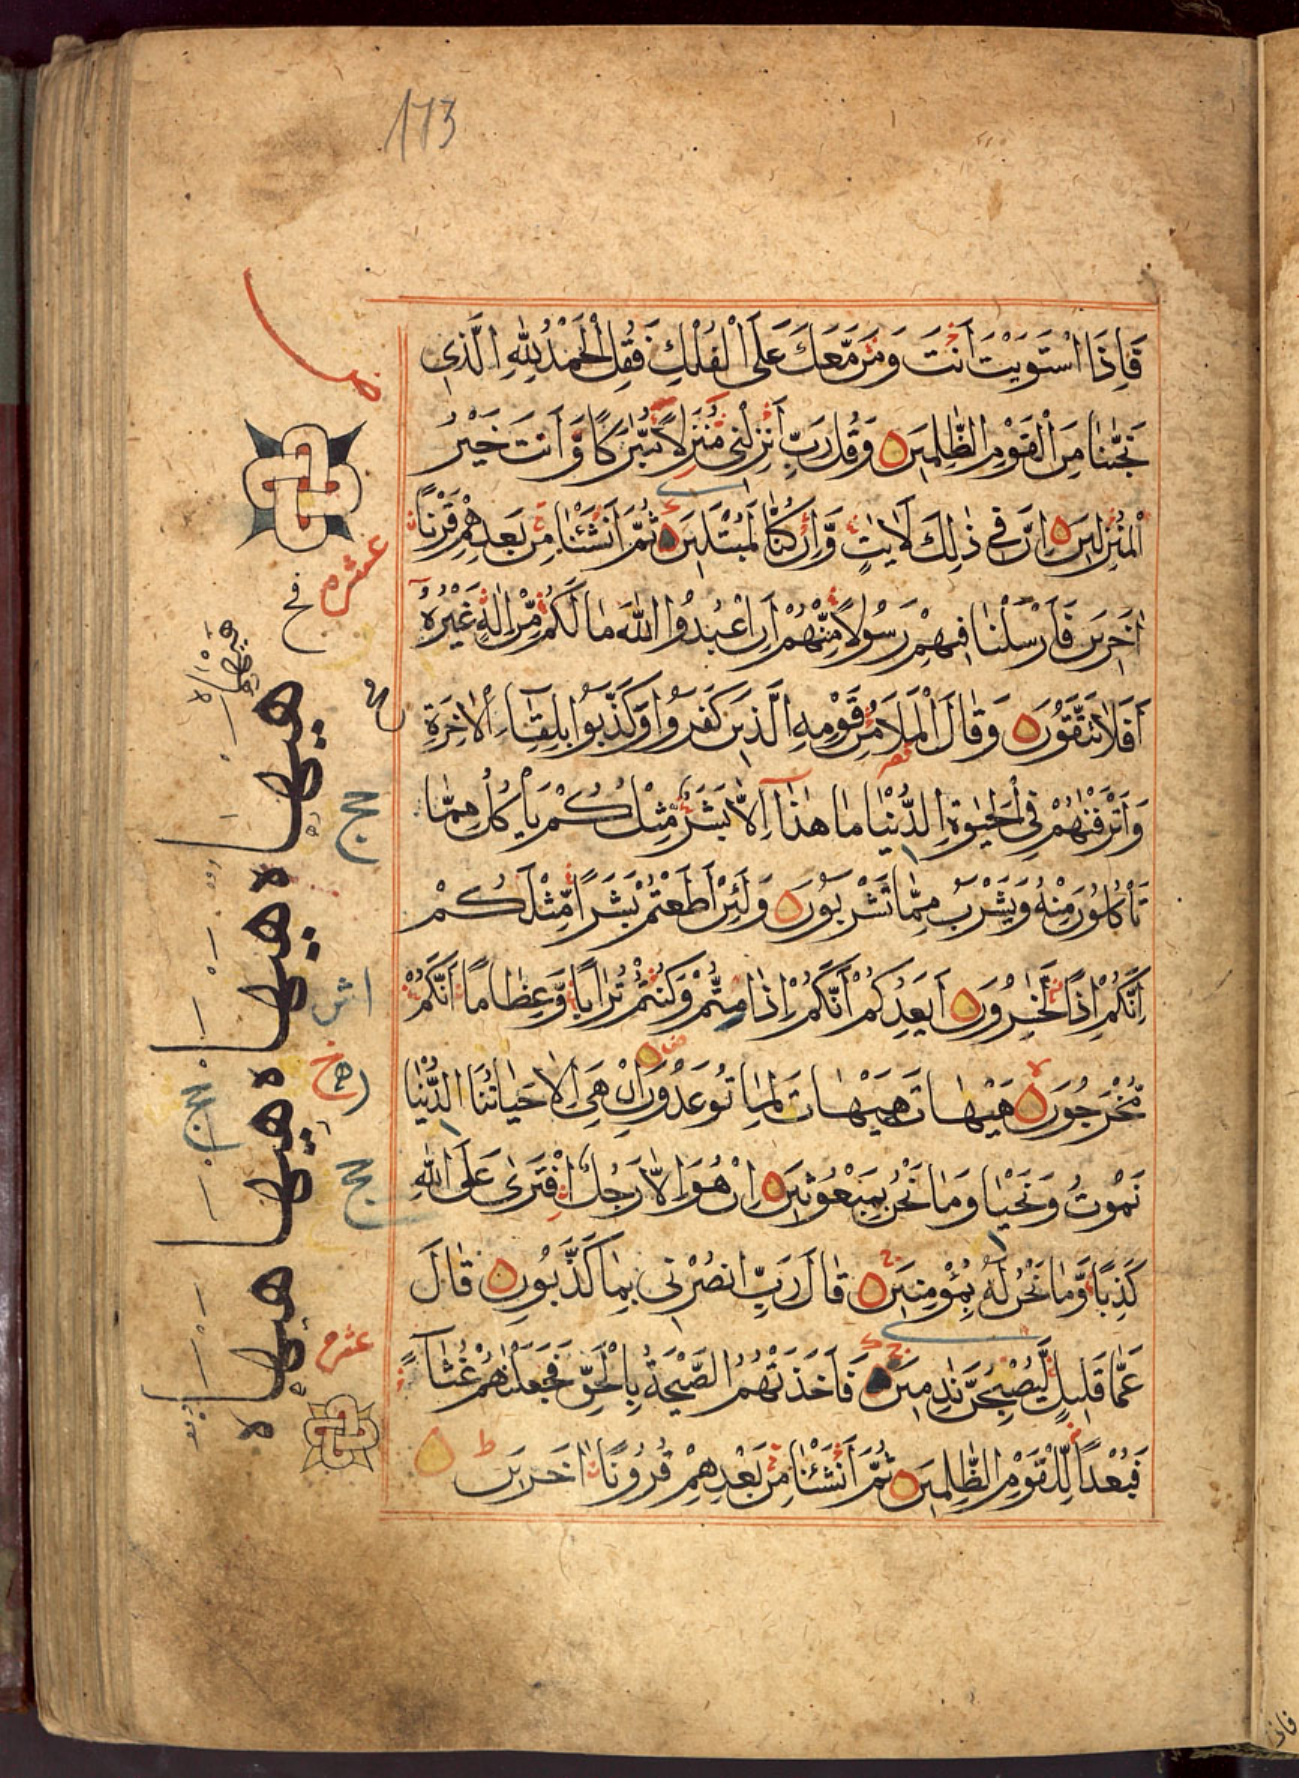 173
فَاِذَا اسْتَوَيْتَ اَنْتَ وَمَنْ مَّعَكَ عَلَى الْفُلْكِ فَقُلِ الْحَمْدُ لِلّٰهِ الَّذِى
نَجّٰىنَا مِنَ الْقَوْمِ الظّٰلِمِيْنَ ۝ وَقُلْ رَبِّ اَنْزِلْنِى مُنْزَلًا مُّبٰرَكًا وَّاَنْتَ خَيْرُ
الْمُنْزِلِيْنَ ۝ اِنَّ فِى ذٰلِكَ لَاٰيٰتٍ وَّاِنْ كُنَّا لَمُبْتَلِيْنَ ۝ ثُمَّ اَنْشَئْنَا مِنْ بَعْدِهِمْ قَرْنًا
اٰخَرِيْنَ فَاَرْسَلْنَا فِيْهِمْ رَسُوْلًا مِّنْهُمْ اَنِ اعْبُدُوا اللّٰهَ مَا لَكُمْ مِّنْ اِلٰهٍ غَيْرُهٗ
اَفَلَا تَتَّقُوْنَ ۝ وَقَالَ الْمَلَاُ مِنْ قَوْمِهِ الَّذِيْنَ كَفَرُوْا وَكَذَّبُوْا بِلِقَآءِ الْاٰخِرَةِ
وَاَتْرَفْنٰهُمْ فِى الْحَيٰوةِ الدُّنْيَا مَا هٰذَا اِلَّا بَشَرٌ مِّثْلُكُمْ يَاْكُلُ مِمَّا
تَاْكُلُوْنَ مِنْهُ وَيَشْرَبُ مِمَّا تَشْرَبُوْنَ ۝ وَلَئِنْ اَطَعْتُمْ بَشَرًا مِّثْلَكُمْ
اِنَّكُمْ اِذًا لَّخٰسِرُوْنَ ۝ اَيَعِدُكُمْ اَنَّكُمْ اِذَا مِتُّمْ وَكُنْتُمْ تُرَابًا وَّعِظَامًا اَنَّكُمْ
مُّخْرَجُوْنَ ۝ هَيْهَاتَ هَيْهَاتَ لِمَا تُوْعَدُوْنَ اِنْ هِىَ اِلَّا حَيَاتُنَا الدُّنْيَا
نَمُوْتُ وَنَحْيَا وَمَا نَحْنُ بِمَبْعُوْثِيْنَ ۝ اِنْ هُوَ اِلَّا رَجُلٌ افْتَرٰى عَلَى اللّٰهِ
كَذِبًا وَّمَا نَحْنُ لَهٗ بِمُؤْمِنِيْنَ ۝ قَالَ رَبِّ انْصُرْنِى بِمَا كَذَّبُوْنِ ۝ قَالَ
عَمَّا قَلِيْلٍ لَّيُصْبِحُنَّ نٰدِمِيْنَ ۝ فَاَخَذَتْهُمُ الصَّيْحَةُ بِالْحَقِّ فَجَعَلْنٰهُمْ غُثَآءً
فَبُعْدًا لِّلْقَوْمِ الظّٰلِمِيْنَ ۝ ثُمَّ اَنْشَئْنَا مِنْ بَعْدِهِمْ قُرُوْنًا اٰخَرِيْنَ ط ۝
عشره
عشره